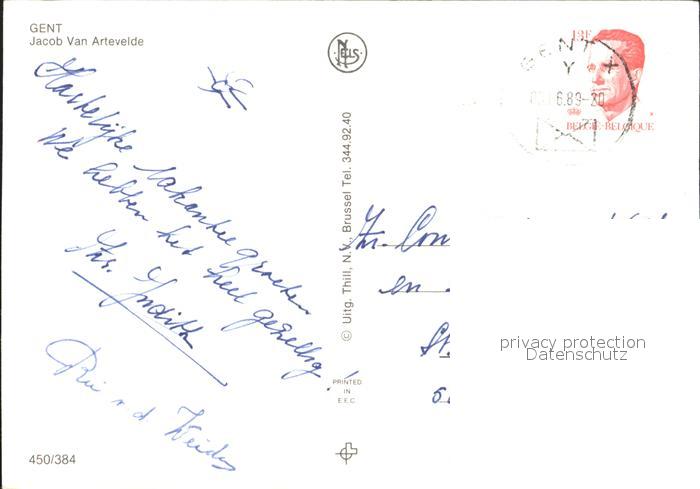 GENT
Jacob Van Artevelde
NELS
13F
GENT X
Y
6.89-20
BELGIE-BELGIQUE
Hartelijke vakantie groeten
We hebben het heel gezellig!
Zr. Judith
© Uitg. Thill, N.V. Brussel Tel. 344.92.40
Zr. Con
en
St.
PRINTED
IN
E.E.C
450/384
privacy protection
Datenschutz